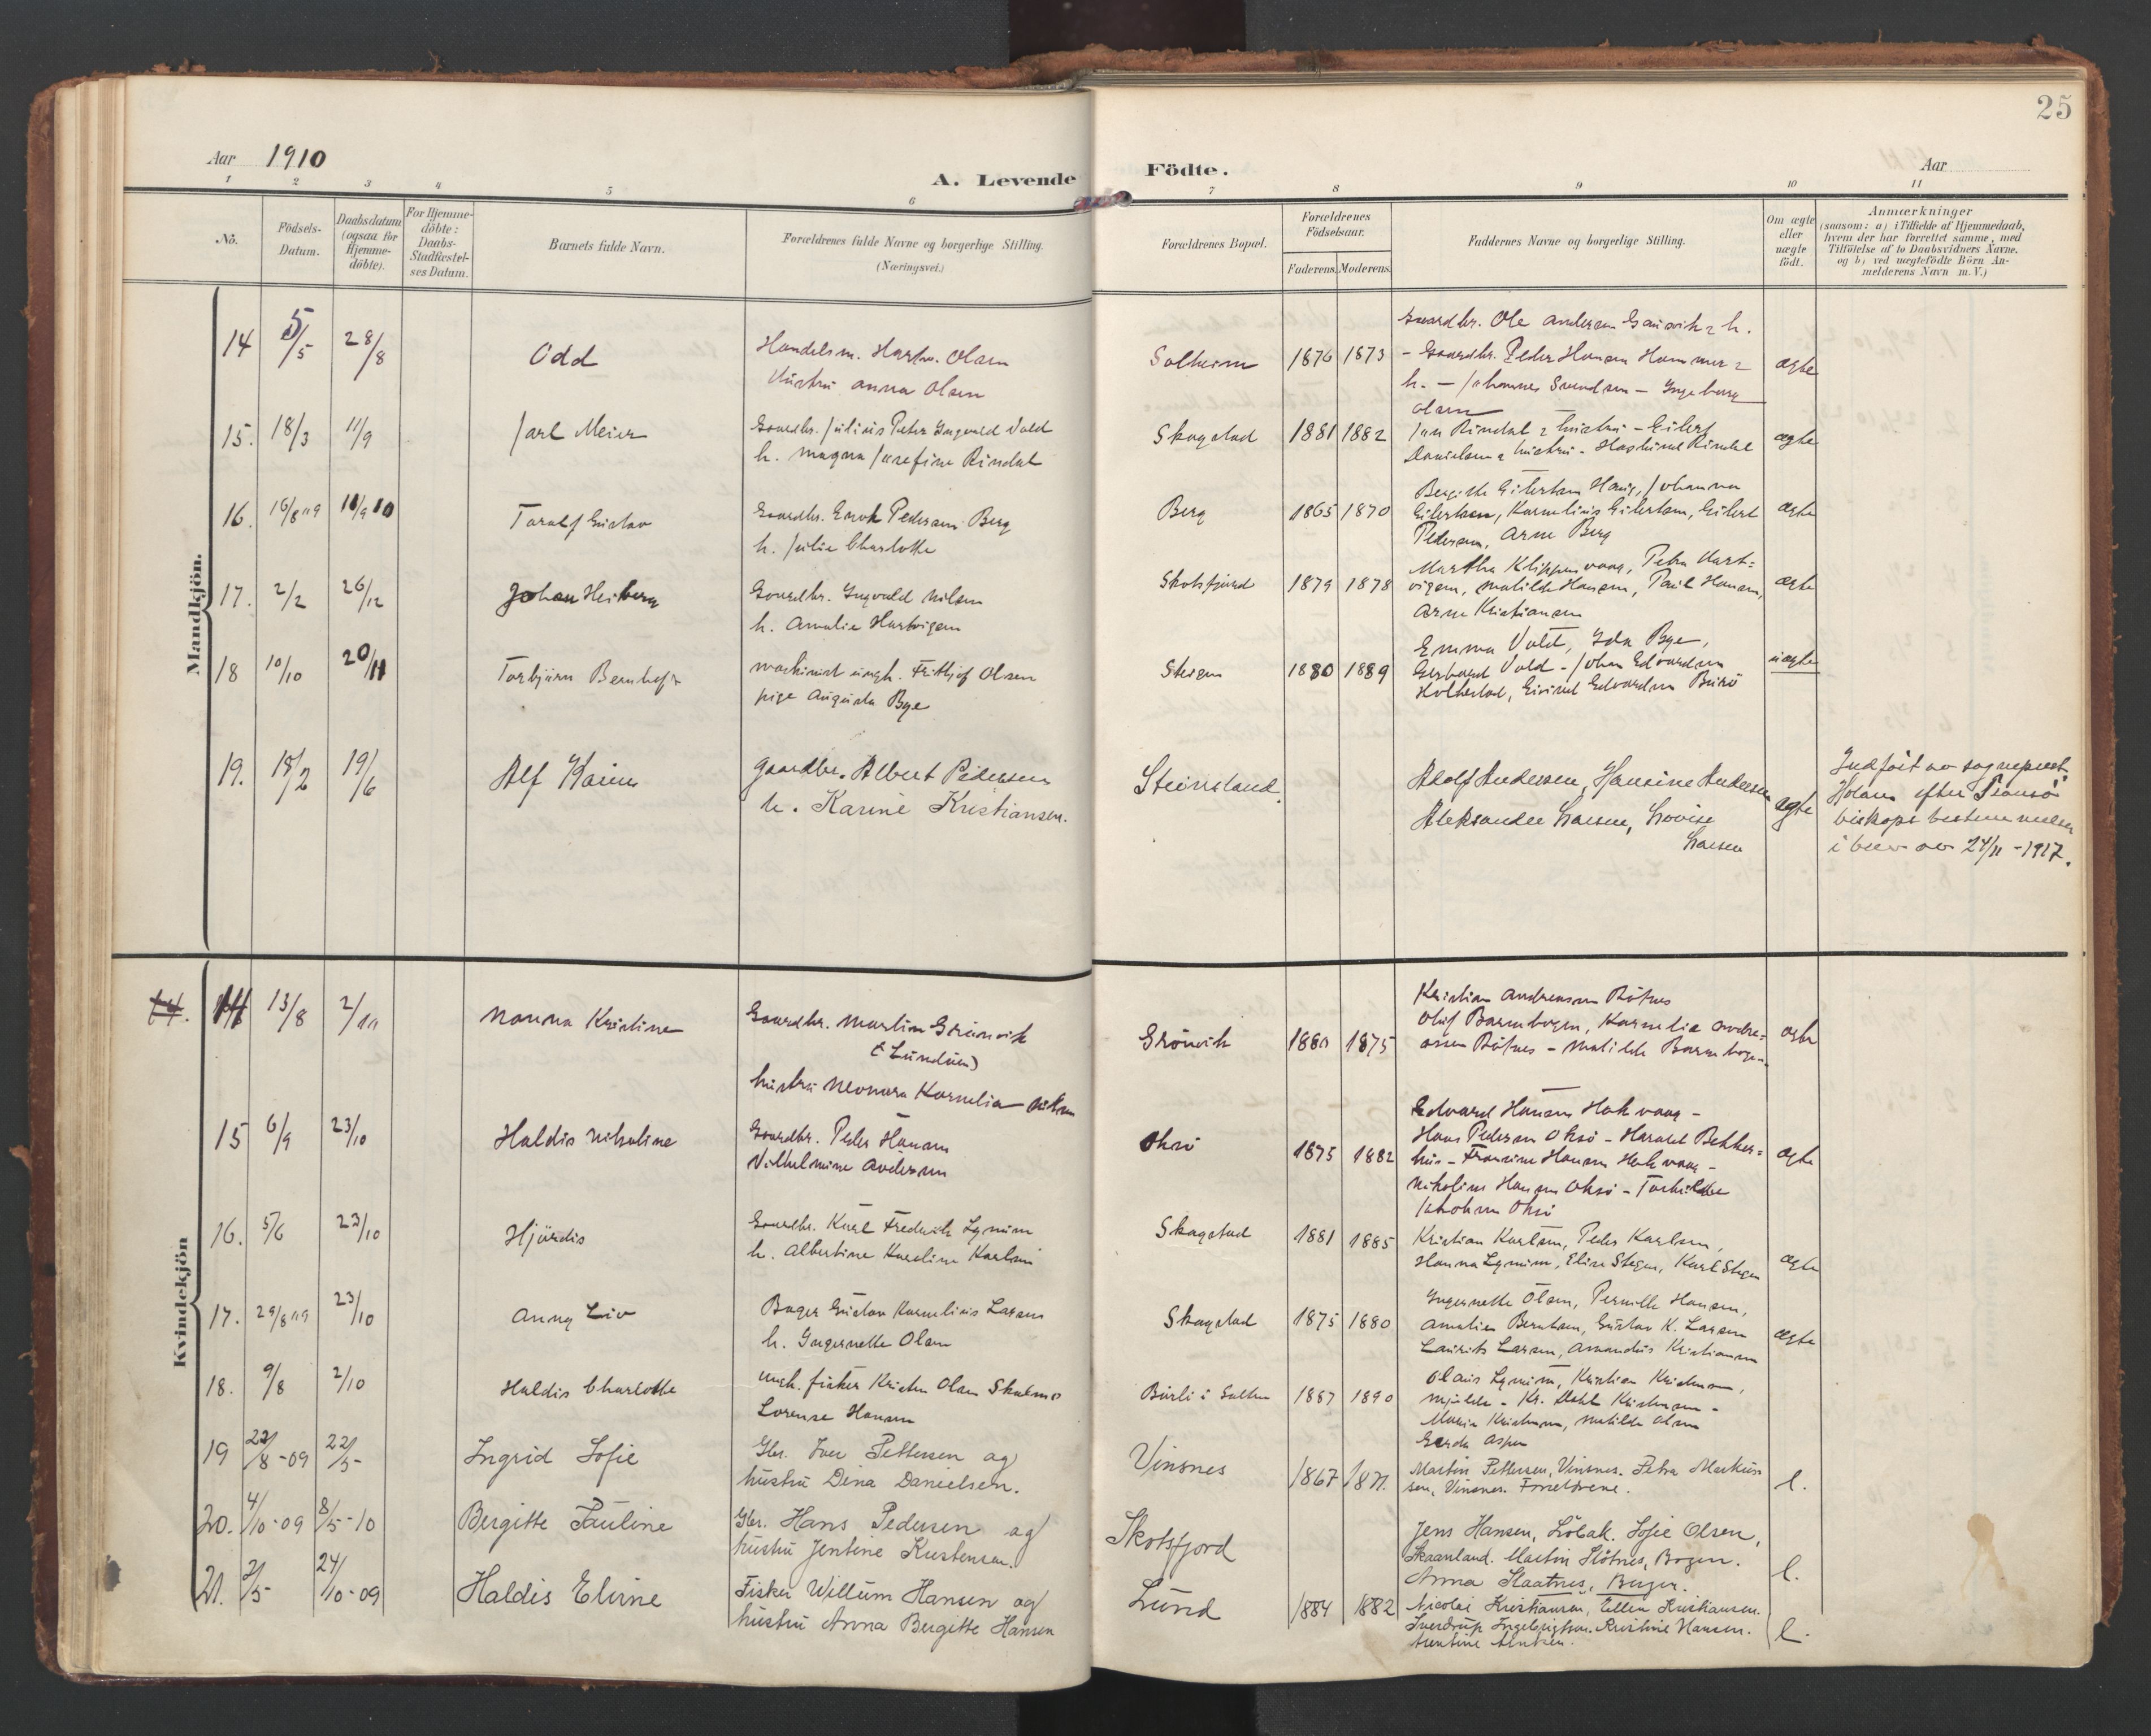 25
Aar 1910
A. Levende Födte.
Aar
1 2 3 4 5 6 7 8 9 10 11
No.
Födsels-Datum.
Daabsdatum (ogsaa for Hjemme-döbte).
For Hjemme-döbte: Daabs-Stadfæstel-ses Datum.
Barnets fulde Navn.
Forældrenes fulde Navne og borgerlige Stilling.
(Næringsvei.)
Forældrenes Bopæl.
Forældrenes Födselsaar.
Faderens. Moderens.
Faddernes Navne og borgerlige Stilling.
Om ægte eller uægte födt.
Anmærkninger
(saasom: a) i Tilfælde af Hjemmedaab,
hvem der har forrettet samme, med
Tilföielse af to Daabsvidners Navne.
og b) ved uægtefödte Börn An-
melderens Navn m.V.)
Mandkjön.
14 5/5 28/8 Odd
Handelsm. Hartv. Olsen
Hustru Anna Olsen
Solheim 1876 1873
Gaardbr. Ole Andersen h.
- Gaardbr. Peder Hansen Hammer
h. - Johannes Svendsen - Ingeborg
Olsen
ægte
15. 18/3 11/9 Jarl Meier
Gaardbr. Julius Peter Ingvald Vold
h. Magna Josefine Rindal
Skagstad 1881 1882
Rindal & hustru - Eilert
Danielsen & hustru - Rindal
ægte
16. 16/8 "9 11/9 10 Toralf Gustav
Gaardbr. Enok Pedersen Berg
h. Julie Charlotte
Berg 1865 1870
Eilertsen Haug, Johanna
Eilertsen, Kornelius Eilertsen, Eilert
Pedersen, Arne Berg
ægte
17. 2/2 26/12 Johan Heiberg
Gaardbr. Ingvald Nilsen
h. Amalie Hartvigsen
Skotsfjord 1879 1878
Martha Klippenvaag, Petra Hart-
vigsen, Matilde Hansen, Paul Hansen,
Arne Kristiansen
ægte
18 10/10 20/11 Torbjørn Bernhoft
Maskinist ungk. Fritthjof Olsen
pige Augusta Bye
Steigen 1880 1889
Emma Vold, Ida Bye,
Gerhard Vold - Johan Edvardsen
Holkestad, Eivind Edvardsen
uægte
19. 18/2 19/6 Alf Kaine
Gaardbr. Albert Pedersen
h. Karine Kristiansen.
Steinsland.
Adolf Andersen, Hansine Andersen
Aleksander Larsen, Lovise
Larsen
ægte
Indført av sogneprest
Holans efter Tromsø
biskops bestemmelse
i brev av 24/11 - 1917.
Kvindekjön
14. 14 13/8 2/10 Nanna Kristine
Gaardbr. Martin Grönvik
(Lundun)
hustru Neonora Kornelia Nilsen
Grönvik 1880 1875
Kristian Andreassen Röttnes
Oluf Barmbogen, Kornelie Andre-
assen Röttnes - Matilde Barmbogen
ægte
15 6/9 23/10 Haldis Nikoline
Gaardbr. Peder Hansen
Vilhelmine Andersen
Oksö 1875 1882
Edvard Hansen Hakvaag -
Hans Pedersen Oksö - Harald Bekker-
hus - Fransine Hansen Hakvaag -
Nikoline Hansen Oksö - Torhilda
Jakobsen Oksö
ægte
16. 5/6 23/10 Hjördis
Gaardbr. Karl Fredrik Lynum
h. Albertine Karoline Karlsen
Skagstad 1881 1885
Kristian Karlsen, Peder Karlsen,
Hanna Lynum, Elise Steigen, Karl Steigen
ægte
17. 29/8 "9 23/10 Anny Liv
Bager Gustav Kornelius Larsen
h. Ingernette Olsen
Skagstad 1875 1880
Ingernette Olsen, Pernille Hansen,
Amalie Berntsen, Gustav K. Larsen
Laurits Larsen, Amandus Kristiansen
ægte
18. 9/8 2/10 Haldis Charlotte
ungk. fisker Kristen Olsen
Lorense Hansen
1887 1890
Olaus Lynum, Kristian Kristensen,
Mjelde - Kr. Dahl Kristensen -
Maria Kristensen, Matilde Olsen
Gerda Aspen
19 22/8 - 09 22/5 - Ingrid Sofie
Gbr. Iver Pettersen og
hustru Dina Danielsen.
Vinsnes 1867 1871.
Martin Pettersen, Vinsnes. Petra Markus-
sen, Vinsnes. Forældrene.
l.
20. 4/10 - 09 8/5 - 10 Bergitte Pauline
Gbr. Hans Pedersen og
hustru Jentine Kristensen.
Skotsfjord
Jens Hansen, Löbak. Sofie Olsen,
Skaanland. Martin Slötnes, Bogen.
Anna Slaatnes, Berger.
l.
21. 2/5 - 24/10 - 09 Haldis Elvine
Fisker Willum Hansen og
hustru Anna Bergitte Hansen
Lund 1884 1882
Nicolai Kristiansen, Ellen Kristiansen.
Sverdrup Ingebrigtsen. Kristine Hansen.
l.